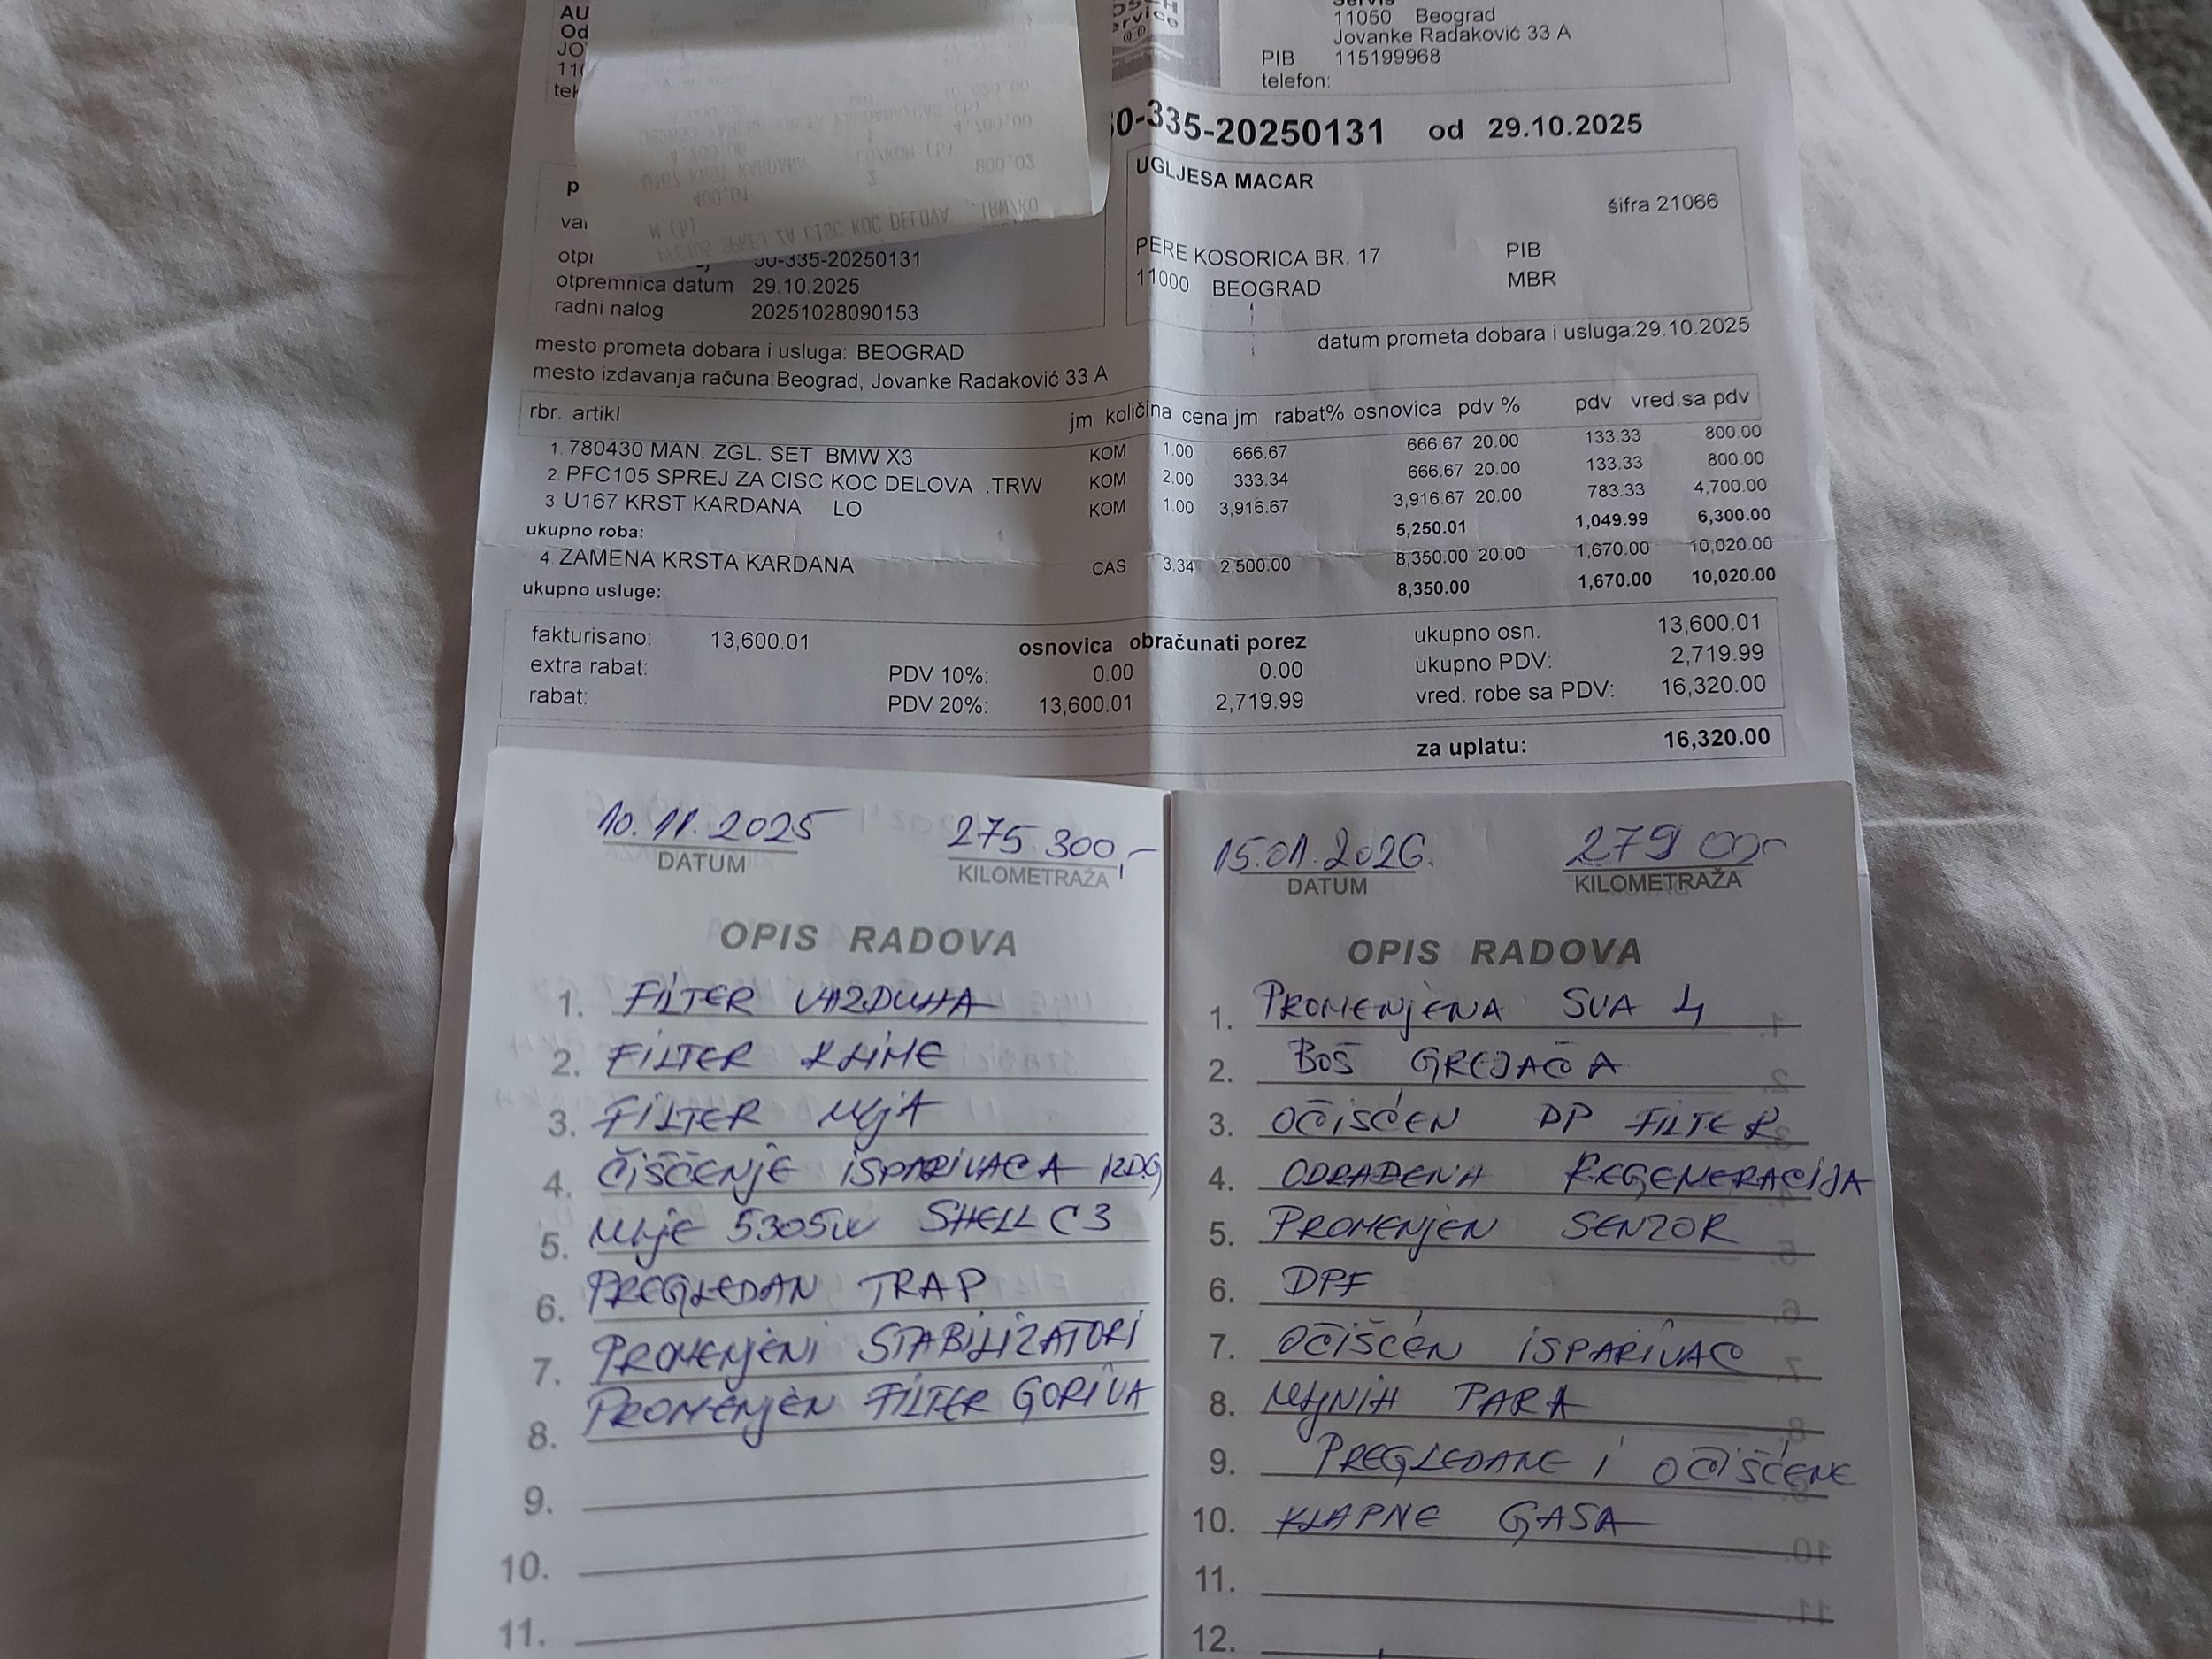 Servis
11050 Beograd
Jovanke Radaković 33 A
PIB 115199968
telefon:
AU
Od
JO
rvice
0-335-20250131 od 29.10.2025
UGLJESA MACAR
šifra 21066
PERE KOSORICA BR. 17 PIB
11000 BEOGRAD MBR
otpremnica datum 29.10.2025
radni nalog 20251028090153
datum prometa dobara i usluga:29.10.2025
mesto prometa dobara i usluga: BEOGRAD
mesto izdavanja računa:Beograd, Jovanke Radaković 33 A
rbr. artikl jm količina cena jm rabat% osnovica pdv % pdv vred.sa pdv
1. 780430 MAN. ZGL. SET BMW X3 KOM 1.00 666.67 666.67 20.00 133.33 800.00
2. PFC105 SPREJ ZA CISC KOC DELOVA .TRW KOM 2.00 333.34 666.67 20.00 133.33 800.00
3. U167 KRST KARDANA LO KOM 1.00 3,916.67 3,916.67 20.00 783.33 4,700.00
ukupno roba: 5,250.01 1,049.99 6,300.00
4. ZAMENA KRSTA KARDANA CAS 3.34 2,500.00 8,350.00 20.00 1,670.00 10,020.00
ukupno usluge: 8,350.00 1,670.00 10,020.00
fakturisano: 13,600.01 osnovica obračunati porez ukupno osn. 13,600.01
extra rabat: PDV 10%: 0.00 0.00 ukupno PDV: 2,719.99
rabat: PDV 20%: 13,600.01 2,719.99 vred. robe sa PDV: 16,320.00
za uplatu: 16,320.00
10.11.2025 275 300,-
DATUM KILOMETRAŽA
OPIS RADOVA
1. FILTER VAZDUHA
2. FILTER KLIME
3. FILTER ULJA
4. ČIŠĆENJE ISPARIVAČA
5. ULJE 5W SHELL C3
6. PREGLEDAN TRAP
7. PROMENJENI STABILIZATORI
8. PROMENJEN FILTER GORIVA
9.
10.
11.
15.01.2026. 279 000
DATUM KILOMETRAŽA
OPIS RADOVA
1. PROMENJENA SVA 4
2. BOŠ GREJAČA
3. OČIŠĆEN DP FILTER
4. ODRAĐENA REGENERACIJA
5. PROMENJEN SENZOR
6. DPF
7. OČIŠĆEN ISPARIVAČ
8. ULJNIH PARA
9. PREGLEDANE I OČIŠĆENE
10. KLAPNE GASA
11.
12.